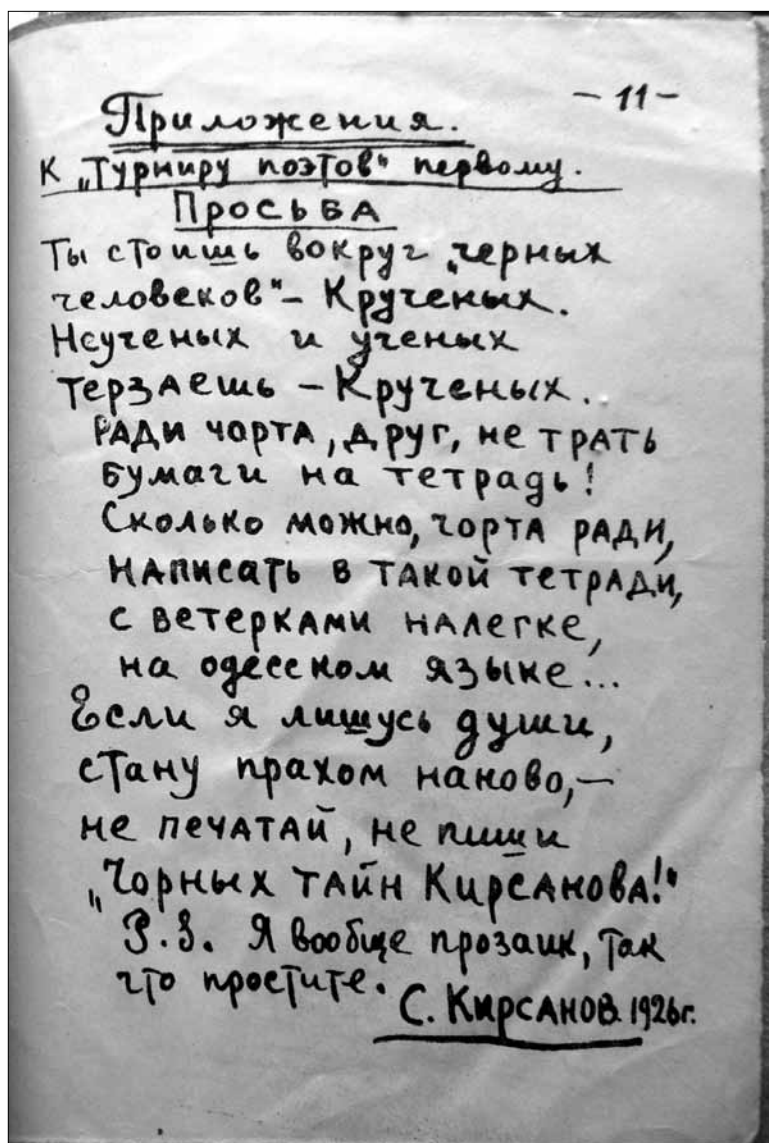 - 11 -
Приложения.
К „Турниру поэтов" первому.
ПРОСЬБА
Ты стоишь вокруг „черных
человеков" - Крученых.
Неученых и ученых
терзаешь - Крученых.
Ради чорта, друг, не трать
бумаги на тетрадь!
Сколько можно, чорта ради,
написать в такой тетради,
с ветерками налегке,
на одесском языке...
Если я лишусь души,
стану прахом наново, —
не печатай, не пиши
„Чорных тайн Кирсанова!"
P.S. Я вообще прозаик, так
что простите.
С. Кирсанов. 1926г.